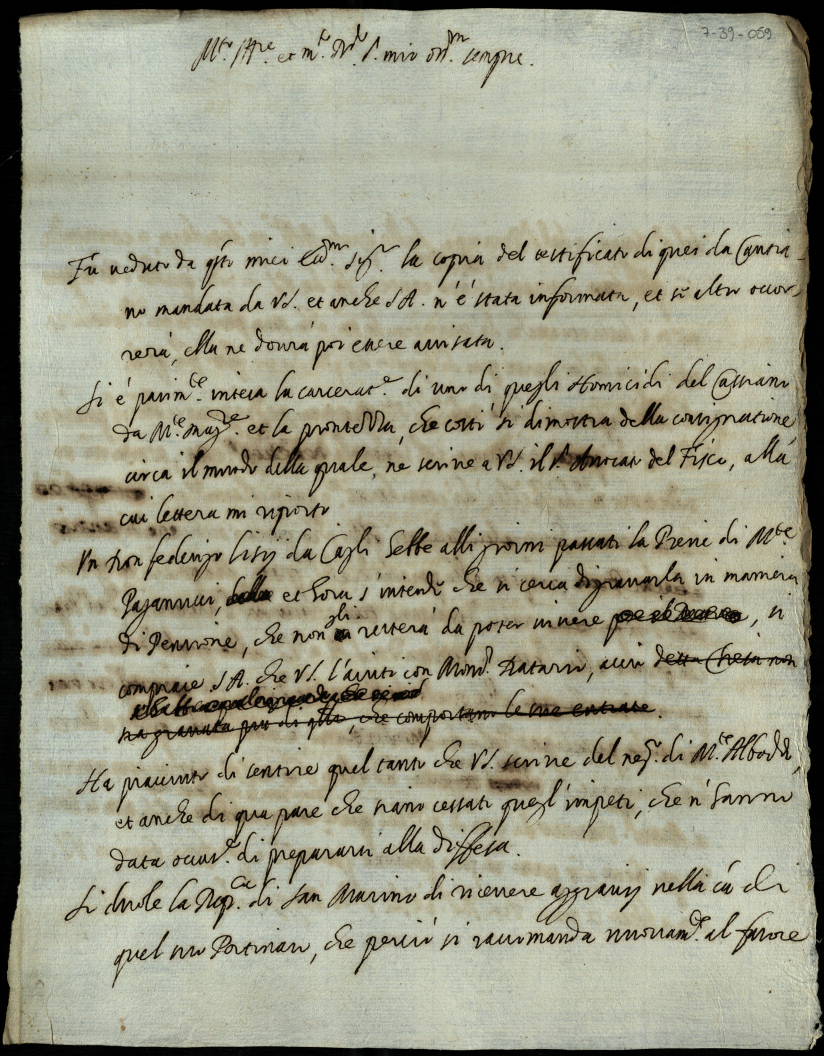 7-39-059
M.to Ill.re et m.to R.do S. mio oss.mo sempre.
Fù veduto da q.sti miei Ecc.mi Sig.ri la copia del testificato di quei da Cantia-
no mandata da VS. et anche SA. n'è stata informata, et se altro occor-
rerà, ella ne dovrà poi essere avvisata.
Si è parim.te intesa la carcerat.e di uno di quegli Homicidi del
da M.te et la prontezza, che costì si dimostra della consignatione
circa il modo della quale, ne scrive a VS. il S. Avvocato del Fisco, alla
cui lettera mi riporto
Un Don Federigo da Cagli hebbe alli giorni passati la Pieve di M.te
Paganucci, et hora s'intende che si cerca di gravarla in maniera
di Pensione, che non gli resterà da poter vivere, si
compiace SA. che VS. l'aiuti con Mons.r Datario, acciò detta Chiesa non
sia gravata più di q.llo, che comportano le sue entrate.
Ha piaciuto di sentire quel tanto che VS. scrive del neg.o di M.te Alboddo,
et anche di qua pare che siano cessati quegl'impeti, che n'hanno
data occas.e di prepararsi alla diffesa.
Si duole la Rep.ca di San Marino di ricevere aggravij nella
quel suo, che perciò si raccomanda nuovam.te al favore